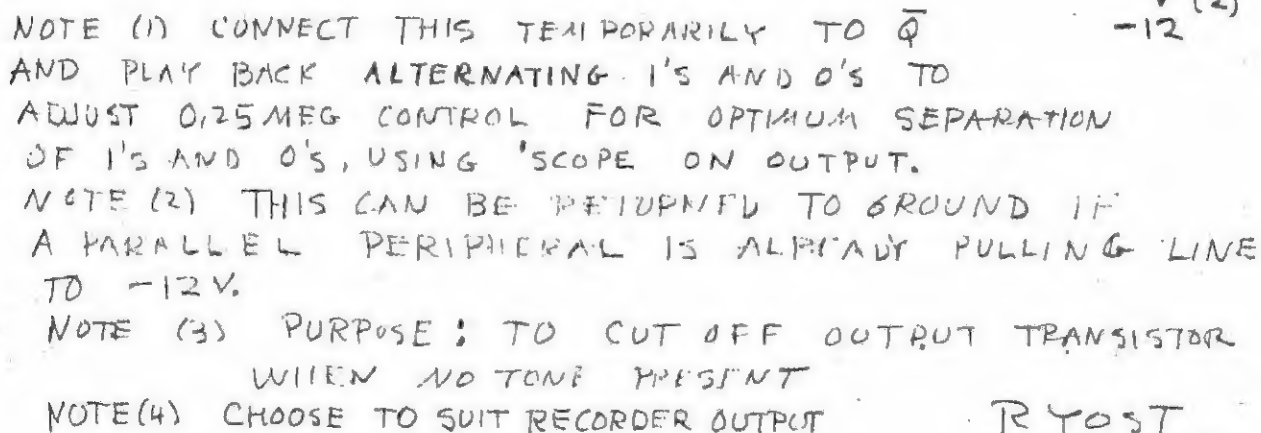 (2)
NOTE (1) CONNECT THIS TEMPORARILY TO Q̅ -12
AND PLAY BACK ALTERNATING 1'S AND 0'S TO
ADJUST 0,25 MEG CONTROL FOR OPTIMUM SEPARATION
OF 1'S AND 0'S, USING 'SCOPE ON OUTPUT.
NOTE (2) THIS CAN BE RETURNED TO GROUND IF
A PARALLEL PERIPHERAL IS ALREADY PULLING LINE
TO -12 V.
NOTE (3) PURPOSE: TO CUT OFF OUTPUT TRANSISTOR
WHEN NO TONE PRESENT
NOTE (4) CHOOSE TO SUIT RECORDER OUTPUT R YOST